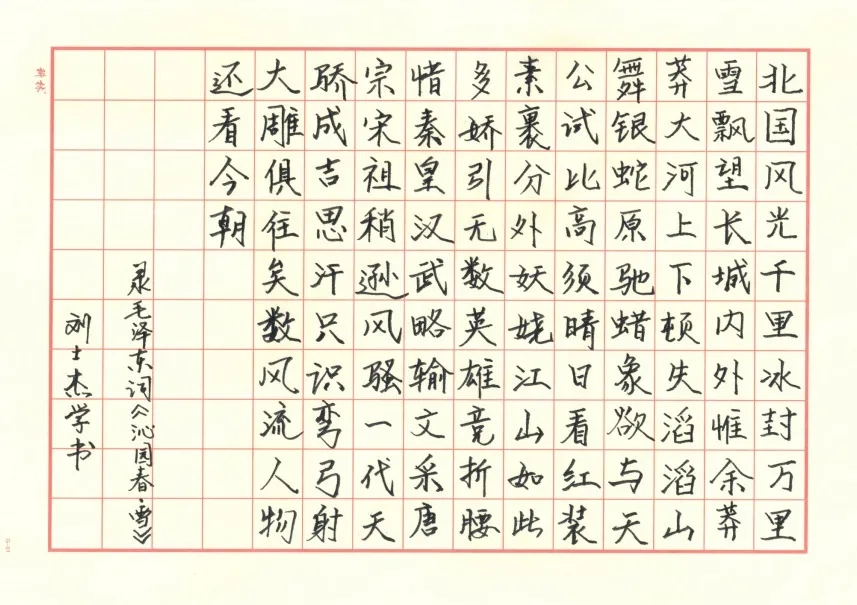 北国风光千里冰封万里
雪飘望长城内外惟余莽
莽大河上下顿失滔滔山
舞银蛇原驰蜡象欲与天
公试比高须晴日看红装
素裹分外妖娆江山如此
多娇引无数英雄竞折腰
惜秦皇汉武略输文采唐
宗宋祖稍逊风骚一代天
骄成吉思汗只识弯弓射
大雕俱往矣数风流人物
还看今朝
录毛泽东词《沁园春雪》
刘士杰学书